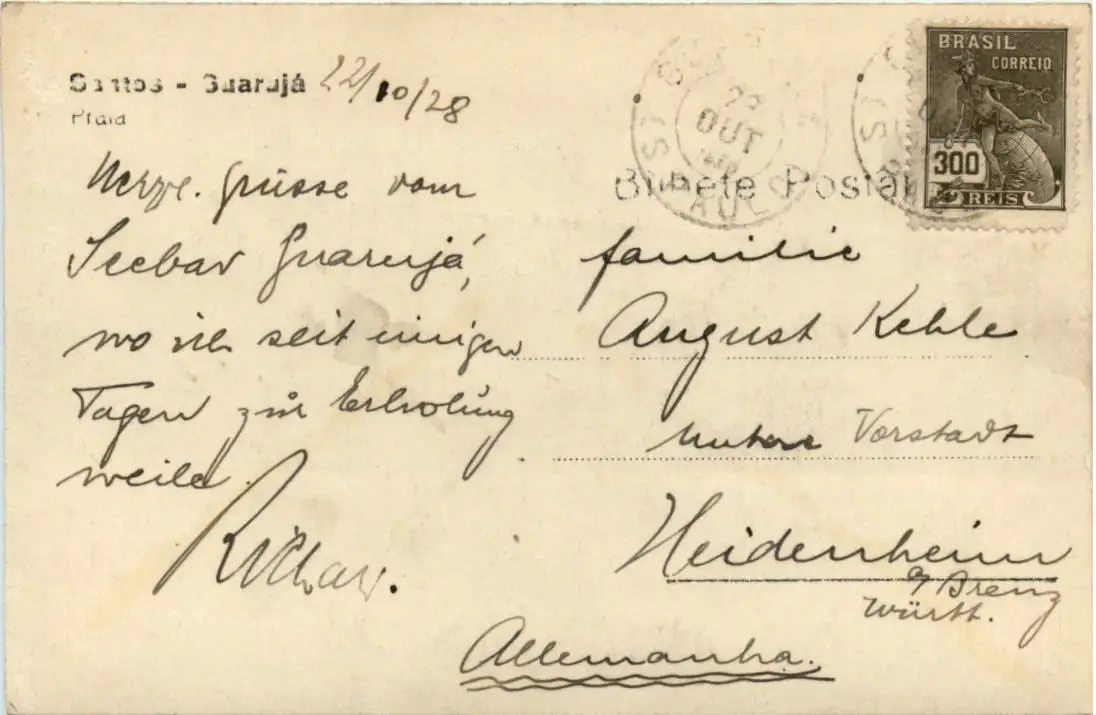 Santos - Guarujá 22/10/28
Praia
Herzl. Grüsse vom
Seebad Guarujá,
wo ich seit einigen
Tagen zur Erholung
weile.
Richard.
BRASIL
CORREIO
300
REIS
OUT
S. PAULO
Bilhete Postal
Familie
August Kehle
untere Vorstadt
Heidenheim
a/ Brenz
Württ.
Allemanha.